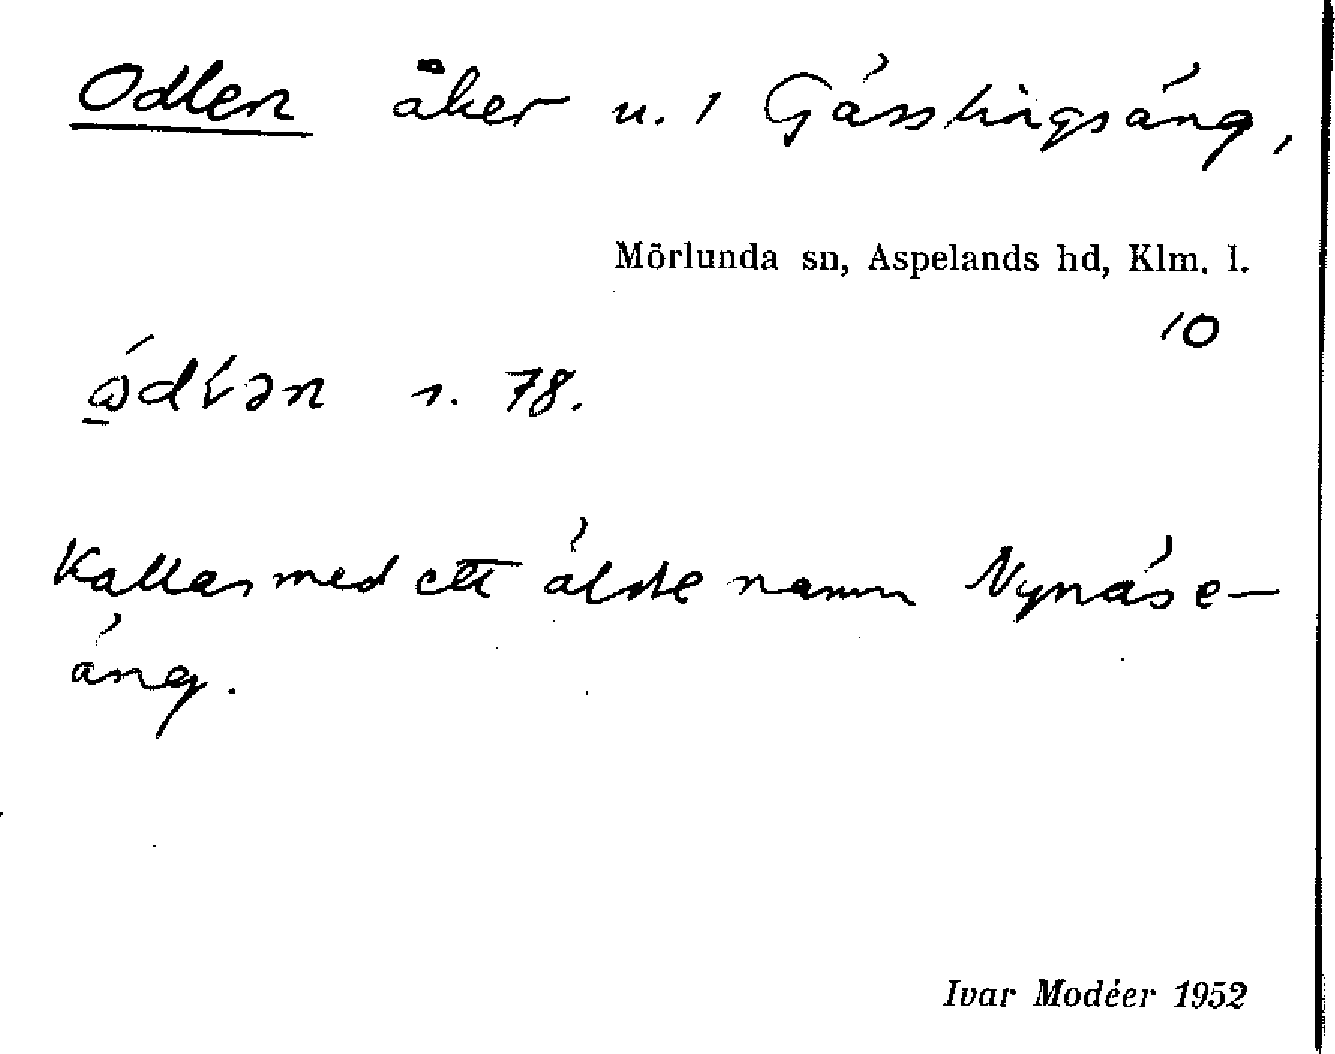 Odlen åker u. 1 Gässlingsäng,
Mörlunda sn, Aspelands hd, Klm. l.
10
s. 78.
Kallas med ett äldre namn Nynäse-
äng.
Ivar Modéer 1952